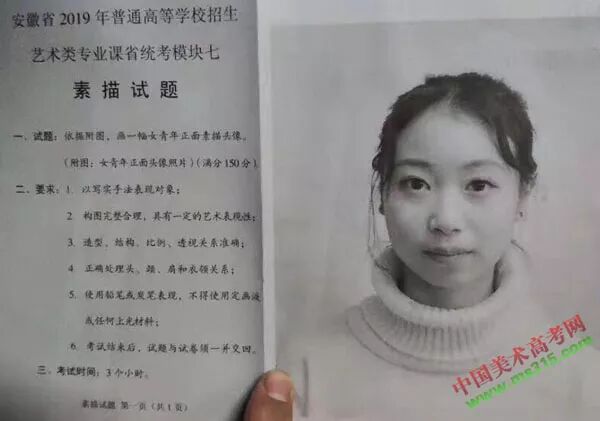 安徽省 2019 年普通高等学校招生
艺术类专业课省统考模块七
素描试题
一、试题：依据附图，画一幅女青年正面素描头像。
（附图：女青年正面头像照片）（满分150分）
二、要求：1. 以写实手法表现对象；
2 构图完整合理，具有一定的艺术表现性；
3. 造型、结构、比例、透视关系准确；
4 正确处理头、颈、肩和衣领关系；
5. 使用铅笔或炭笔表现，不得使用定画液
或任何上光材料；
6. 考试结束后，试题与试卷须一并交回。
三、考试时间：3 个小时。
素描试题 第一页（共1页）
中国美术高考网
www.ms315.com